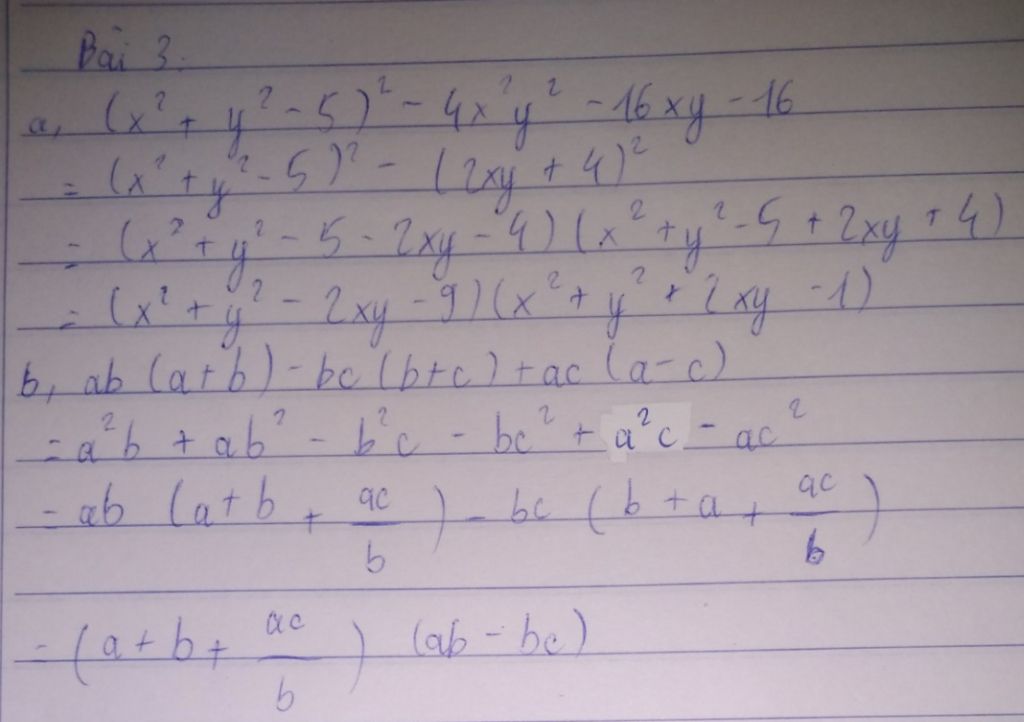 Bài 3:
a, (x² + y² - 5)² - 4x²y² - 16xy - 16
= (x² + y² - 5)² - (2xy + 4)²
= (x² + y² - 5 - 2xy - 4)(x² + y² - 5 + 2xy + 4)
= (x² + y² - 2xy - 9)(x² + y² + 2xy - 1)
b, ab(a+b) - bc(b+c) + ac(a-c)
= a²b + ab² - b²c - bc² + a²c - ac²
= ab (a + b + ac/b) - bc (b + a + ac/b)
= (a + b + ac/b) (ab - bc)